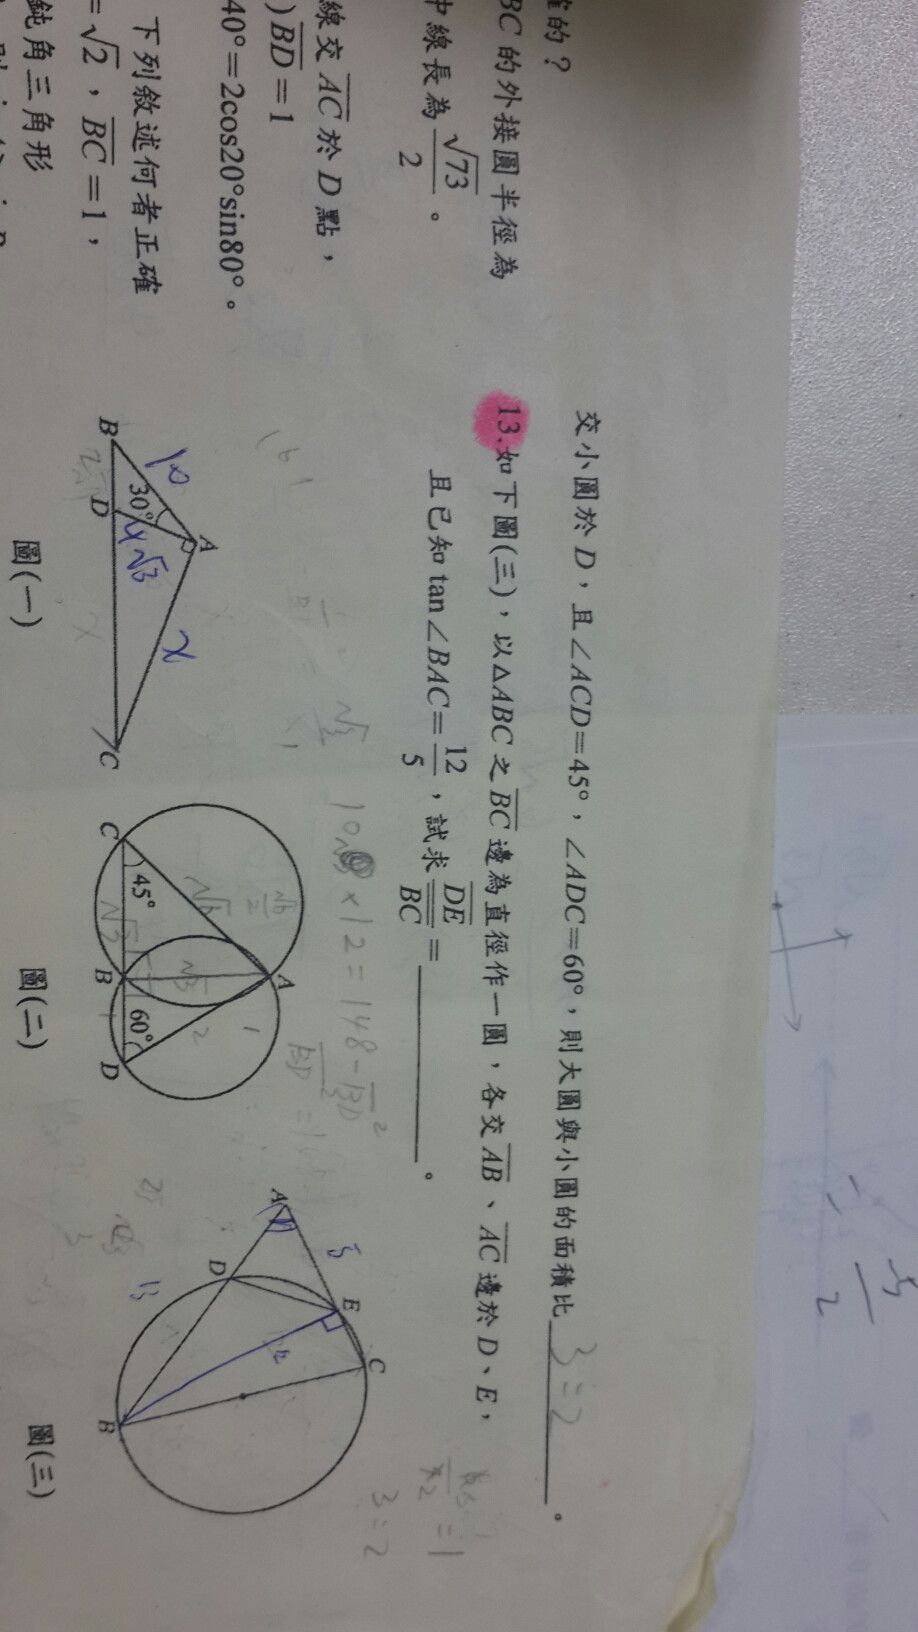 確的？
BC 的外接圓半徑為
中線長為 √73/2 。
線交 AC 於 D 點，
) BD = 1
40° = 2cos20°sin80° 。
下列敘述何者正確
= √2 , BC = 1 ,
鈍角三角形
交小圓於 D，且∠ACD=45°，∠ADC=60°，則大圓與小圓的面積比 3:2 。
13. 如下圖(三)，以△ABC 之 BC 邊為直徑作一圓，各交 AB、AC 邊於 D、E，
且已知 tan∠BAC = 12/5 ，試求 DE/BC = ____ 。
10 × 12 = 148 - BD²
A
10
30°
4√3
x
B D C
圖(一)
A
√6
√3
2
1
45° 60°
√3
C B D
圖(二)
A
5
E
C
D
12
13
B
圖(三)
= 1
3:2
5/2